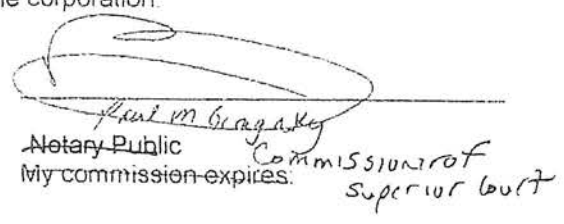 ne corporation.
Paul M
Notary Public
Commissioner of
My commission expires:
Superior Court